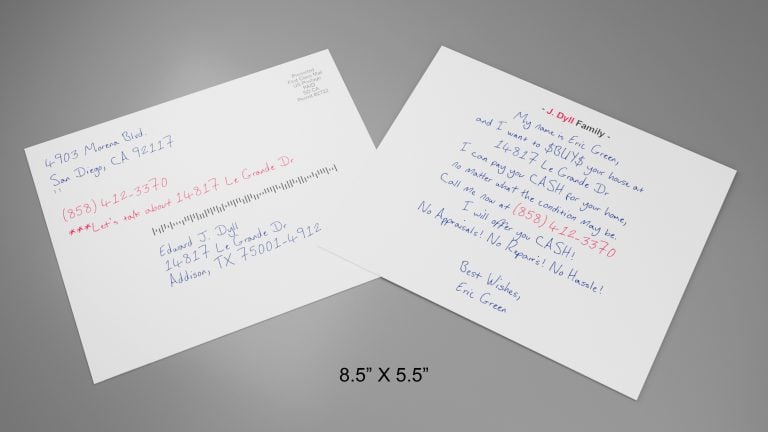 4903 Morena Blvd.
San Diego, CA 92117
Presorted
First Class Mail
US Postage
PAID
SD CA
(858) 412-3370
***Let's talk about 14817 Le Grande Dr
Edward J. Dyll
14817 Le Grande Dr
Addison, TX 75001-4912
- J. Dyll Family -
My name is Eric Green,
and I want to $BUY$ your house at
14817 Le Grande Dr
I can pay you CASH for your home,
no matter what the condition may be.
Call me now at (858) 412-3370
I will offer you CASH!
No Appraisals! No Repairs! No Hassle!
Best Wishes,
Eric Green
8.5” X 5.5”